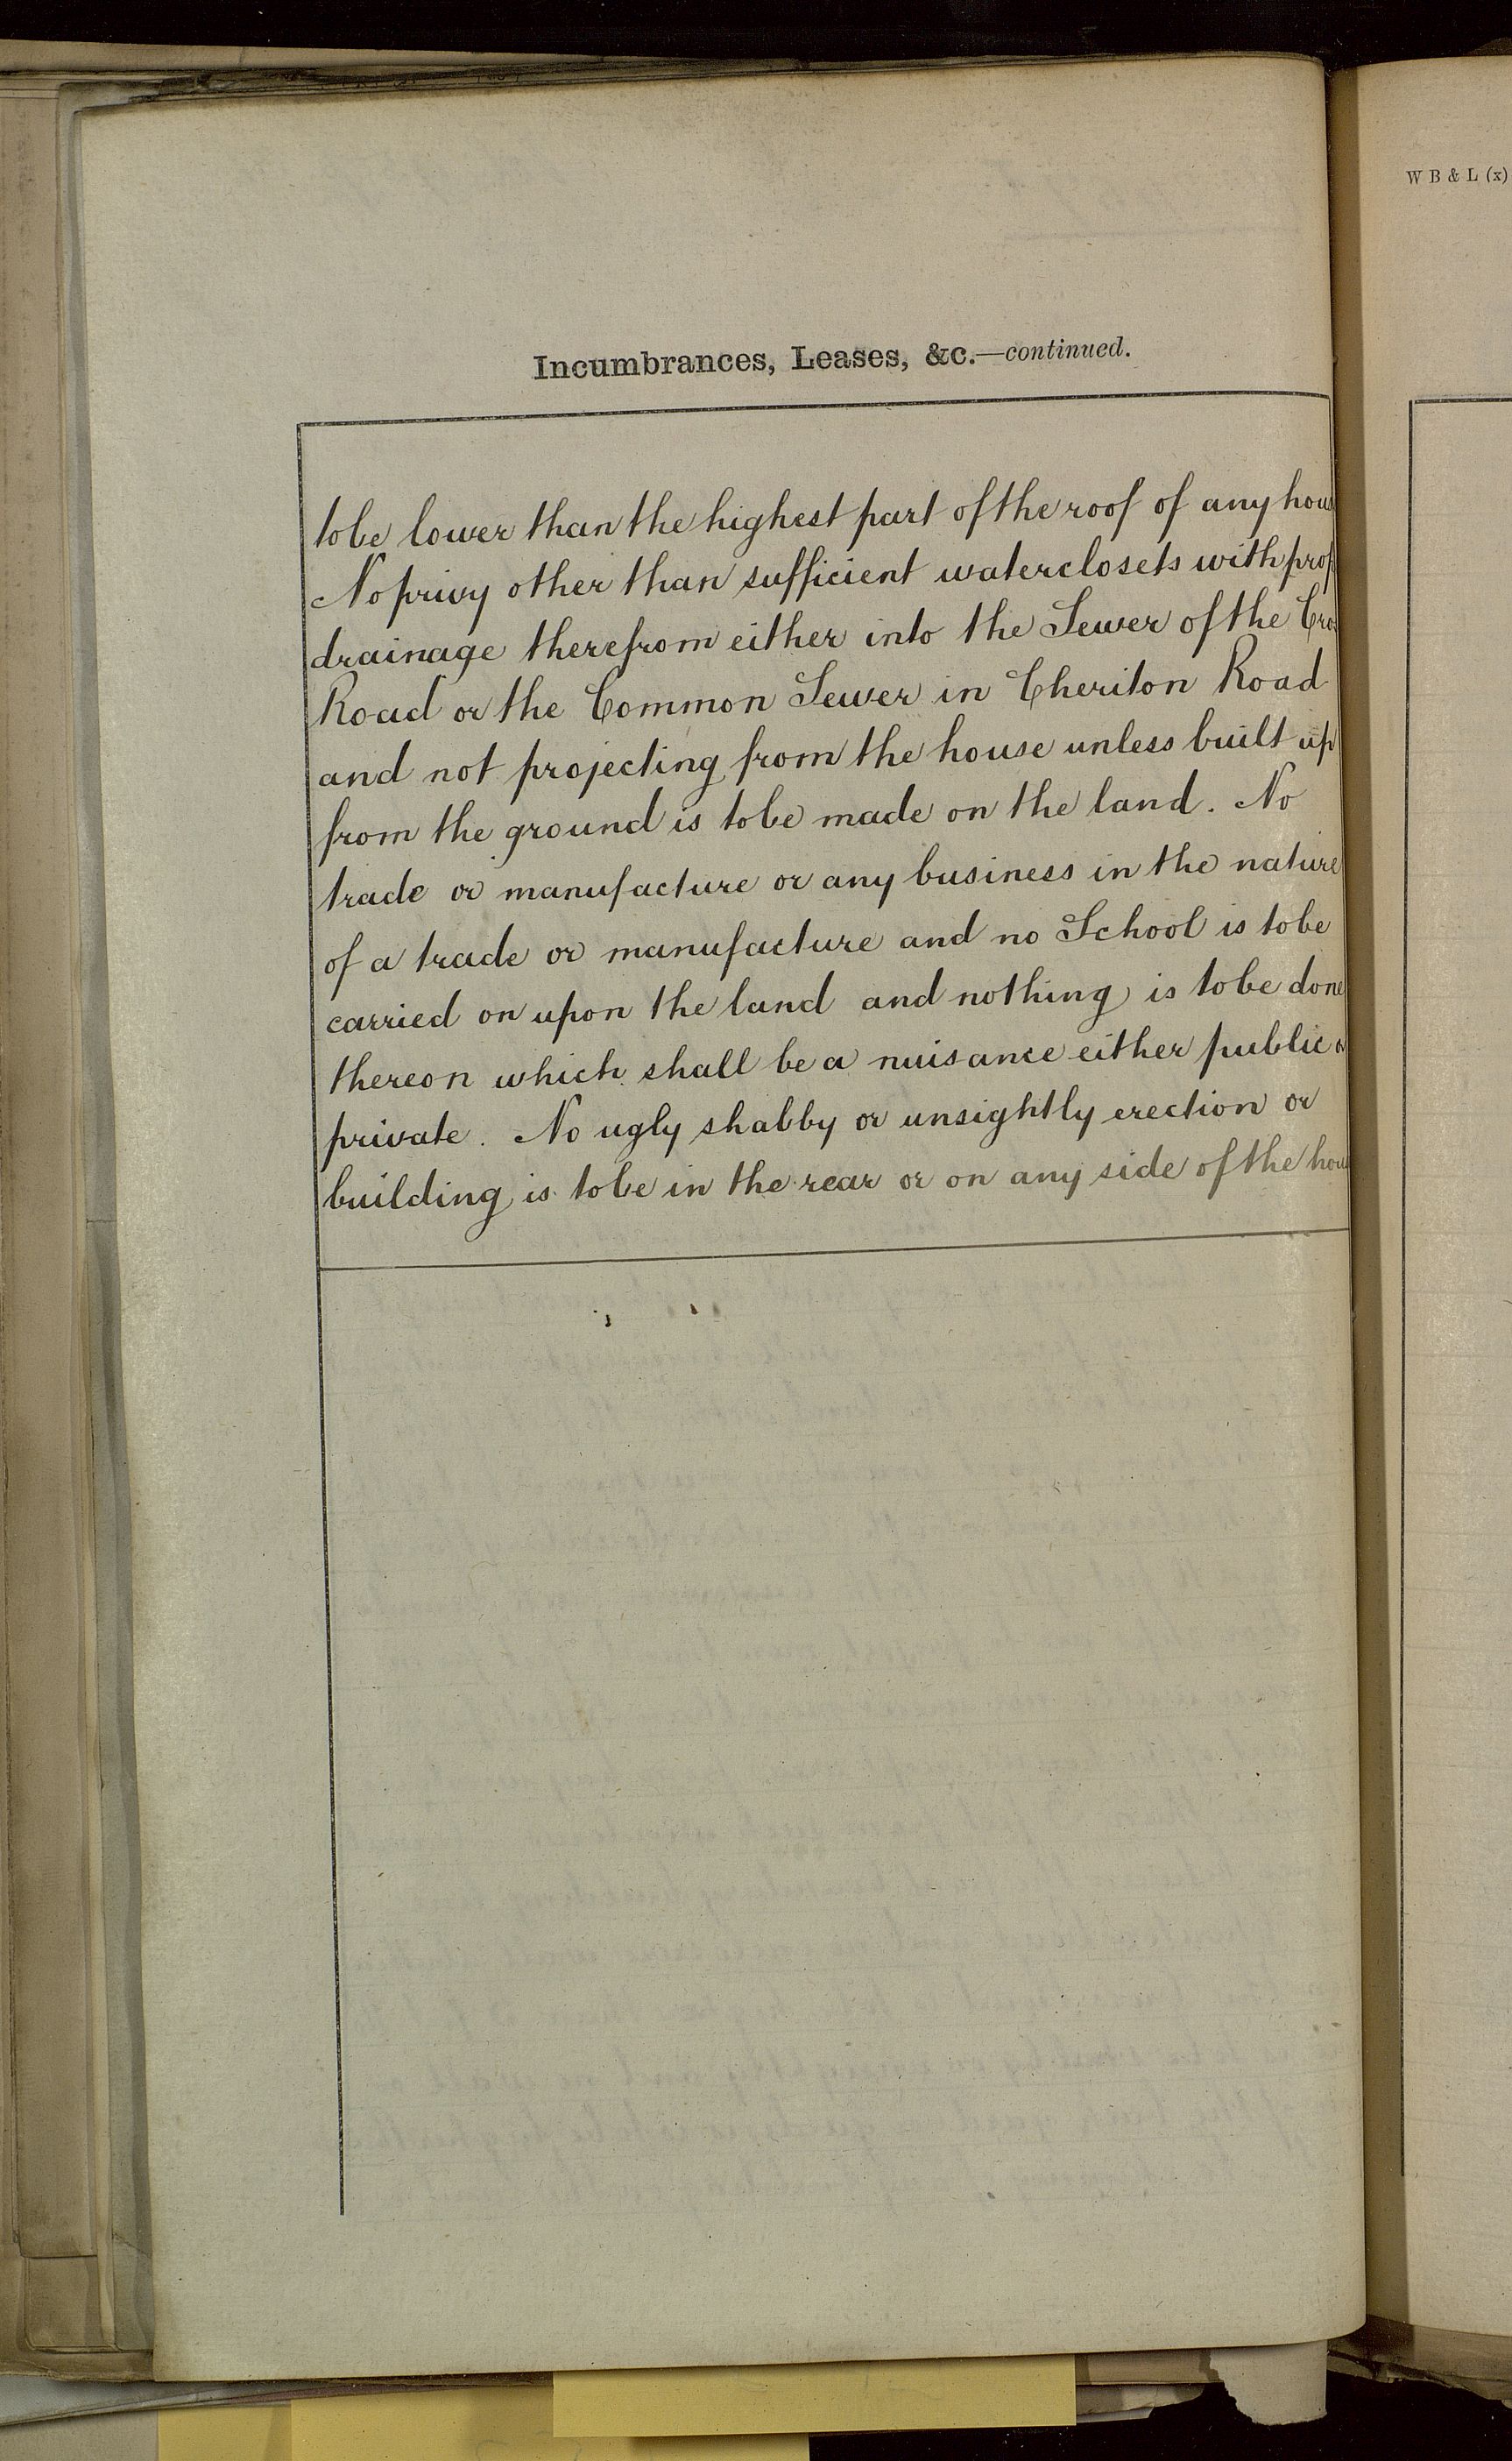 W B & L (x)
Incumbrances, Leases, &c.—continued.
to be lower than the highest part of the roof of any hous
No privy other than sufficient waterclosets with prop
drainage therefrom either into the Sewer of the Cro
Road or the Common Sewer in Cheriton Road
and not projecting from the house unless built up
from the ground is to be made on the land. No
trade or manufacture or any business in the nature
of a trade or manufacture and no School is to be
carried on upon the land and nothing is to be done
thereon which shall be a nuisance either public o
private. No ugly shabby or unsightly erection or
building is to be in the rear or on any side of the hou